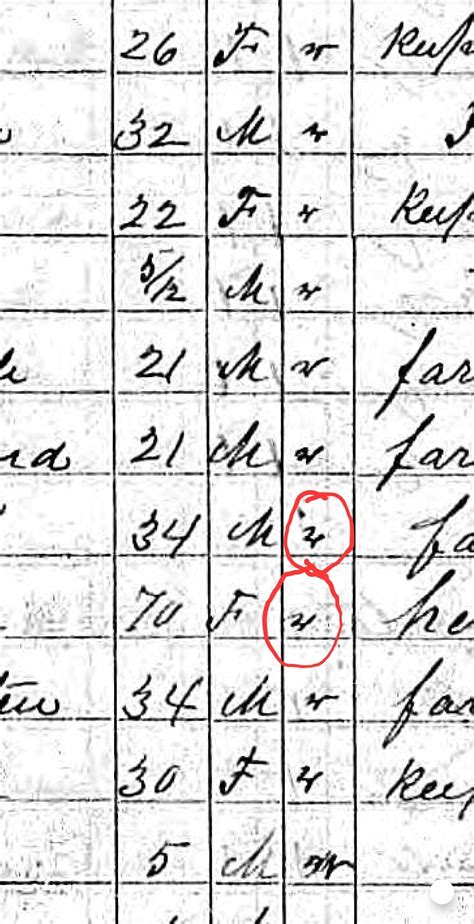 26 F w Keep
32 M w
22 F w Keep
5/12 M w
21 M w far
21 M w far
34 M w fa
70 F w
34 M w far
30 F w Keep
5 M w